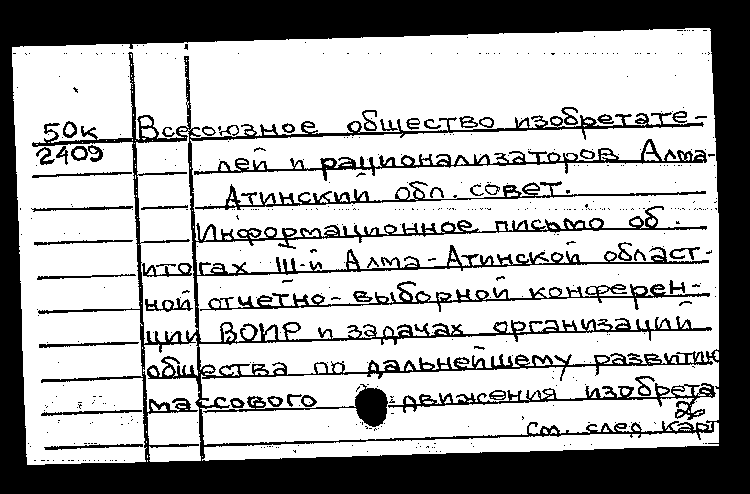 50к Всесоюзное общество изобретате-
2409 лей и рационализаторов Алма-
Атинский обл. совет.
Информационное письмо об
итогах III-й Алма-Атинской област-
ной отчетно-выборной конферен-
ции ВОИР и задачах организаций
общества по дальнейшему развитию
массового движения изобрета-
см. след. карт